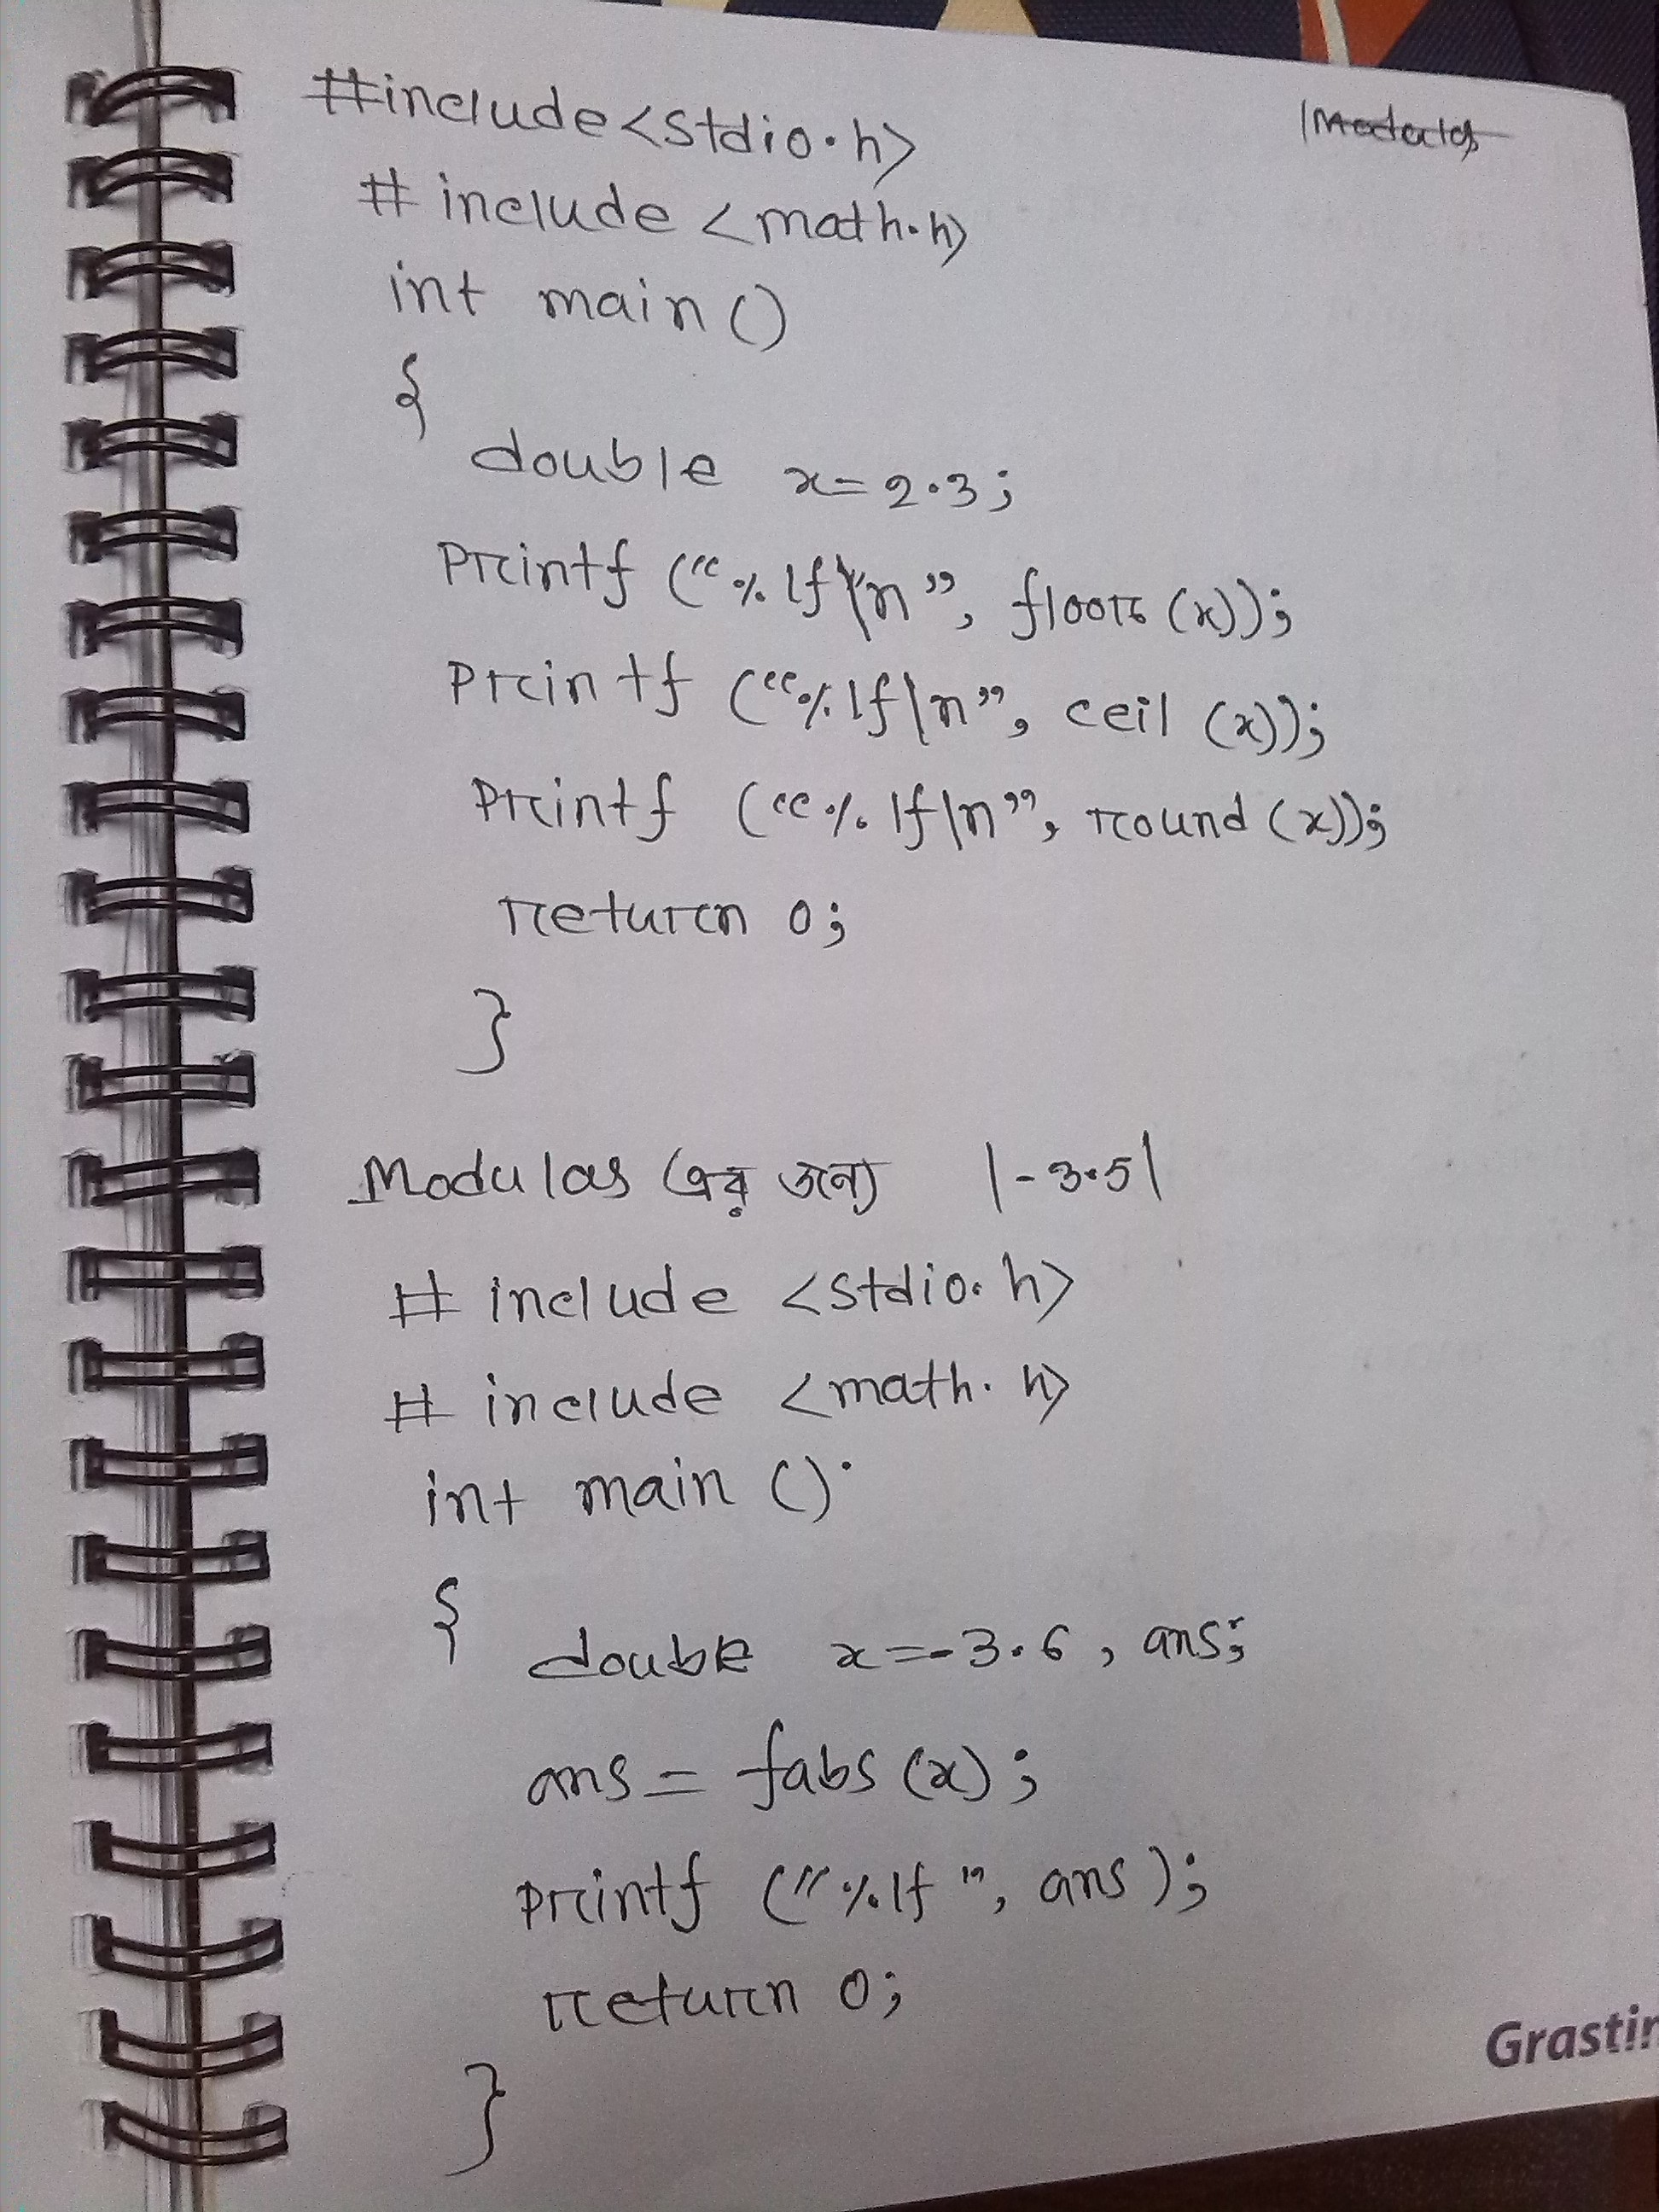 #include<stdio.h>
# include <math.h>
int main ()
{
double x=2.3;
Printf ("%lf\n", floor (x));
Printf ("%lf\n", ceil (x));
Printf ("%lf\n", round (x));
return 0;
}
Modulas এর জন্য |-3.5|
# include <stdio.h>
# include <math.h>
int main ()
{
double x=-3.6, ans;
ans = fabs (x);
printf ("%lf", ans);
return 0;
}
Grastin